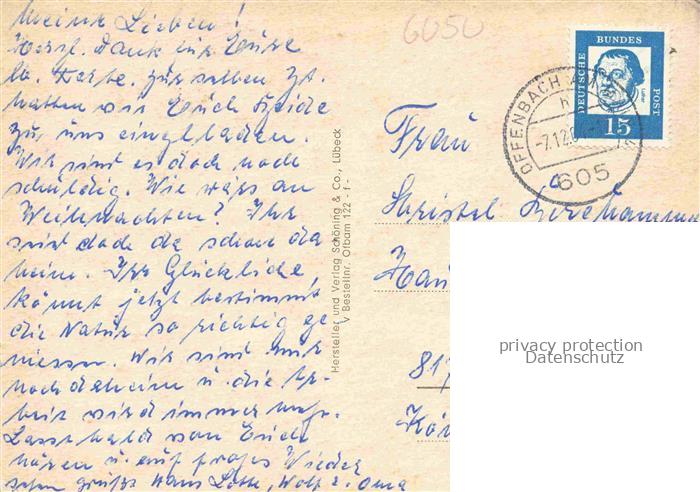 Meine Lieben!
Herzl. Dank für Eure
lb. Karte. Zur selben Zt.
hatten wir Euch beide
zu uns eingeladen.
Wir sind es doch noch
schuldig. Wie wärs an
Weihnachten? Ihr
seid doch da schon da
heim. Ihr Glückliche,
könnt jetzt bestimmt
die Natur so richtig ge
niessen. Wir sind nur
noch daheim u. die Ar-
beit wird immer mehr.
Lasst bald von Euch
hören u. auf frohes Wieder
sehen grüßt Hans Lotte, Wolf u. Oma
Hersteller und Verlag Schöning & Co., Lübeck
V Bestellnr. Ofbam 122 - f -
6050
DEUTSCHE BUNDES POST
15
OFFENBACH
h
-7.12.
605
Frau
Christel
Hau
817
Kön
privacy protection
Datenschutz